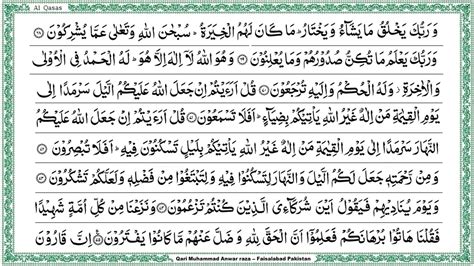 Al Qasas
وَرَبُّكَ يَخْلُقُ مَا يَشَآءُ وَيَخْتَارُ ؕ مَا كَانَ لَهُمُ الْخِيَرَةُ ؕ سُبْحٰنَ اللّٰهِ وَتَعٰلٰى عَمَّا يُشْرِكُوْنَ ۝۶۸
وَرَبُّكَ يَعْلَمُ مَا تُكِنُّ صُدُوْرُهُمْ وَمَا يُعْلِنُوْنَ ۝۶۹ وَهُوَ اللّٰهُ لَاۤ اِلٰهَ اِلَّا هُوَ ؕ لَهُ الْحَمْدُ فِى الْاُوْلٰى
وَالْاٰخِرَةِ ؗ وَلَهُ الْحُكْمُ وَاِلَيْهِ تُرْجَعُوْنَ ۝۷۰ قُلْ اَرَءَيْتُمْ اِنْ جَعَلَ اللّٰهُ عَلَيْكُمُ الَّيْلَ سَرْمَدًا اِلٰى
يَوْمِ الْقِيٰمَةِ مَنْ اِلٰهٌ غَيْرُ اللّٰهِ يَاْتِيْكُمْ بِضِيَآءٍ ؕ اَفَلَا تَسْمَعُوْنَ ۝۷۱ قُلْ اَرَءَيْتُمْ اِنْ جَعَلَ اللّٰهُ عَلَيْكُمُ
النَّهَارَ سَرْمَدًا اِلٰى يَوْمِ الْقِيٰمَةِ مَنْ اِلٰهٌ غَيْرُ اللّٰهِ يَاْتِيْكُمْ بِلَيْلٍ تَسْكُنُوْنَ فِيْهِ ؕ اَفَلَا تُبْصِرُوْنَ ۝۷۲
وَمِنْ رَّحْمَتِهٖ جَعَلَ لَكُمُ الَّيْلَ وَالنَّهَارَ لِتَسْكُنُوْا فِيْهِ وَلِتَبْتَغُوْا مِنْ فَضْلِهٖ وَلَعَلَّكُمْ تَشْكُرُوْنَ ۝۷۳
وَيَوْمَ يُنَادِيْهِمْ فَيَقُوْلُ اَيْنَ شُرَكَآءِىَ الَّذِيْنَ كُنْتُمْ تَزْعُمُوْنَ ۝۷۴ وَنَزَعْنَا مِنْ كُلِّ اُمَّةٍ شَهِيْدًا
فَقُلْنَا هَاتُوْا بُرْهَانَكُمْ فَعَلِمُوْۤا اَنَّ الْحَقَّ لِلّٰهِ وَضَلَّ عَنْهُمْ مَّا كَانُوْا يَفْتَرُوْنَ ۝۷۵ اِنَّ قَارُوْنَ
Qari Muhammad Anwar raza – Faisalabad Pakistan